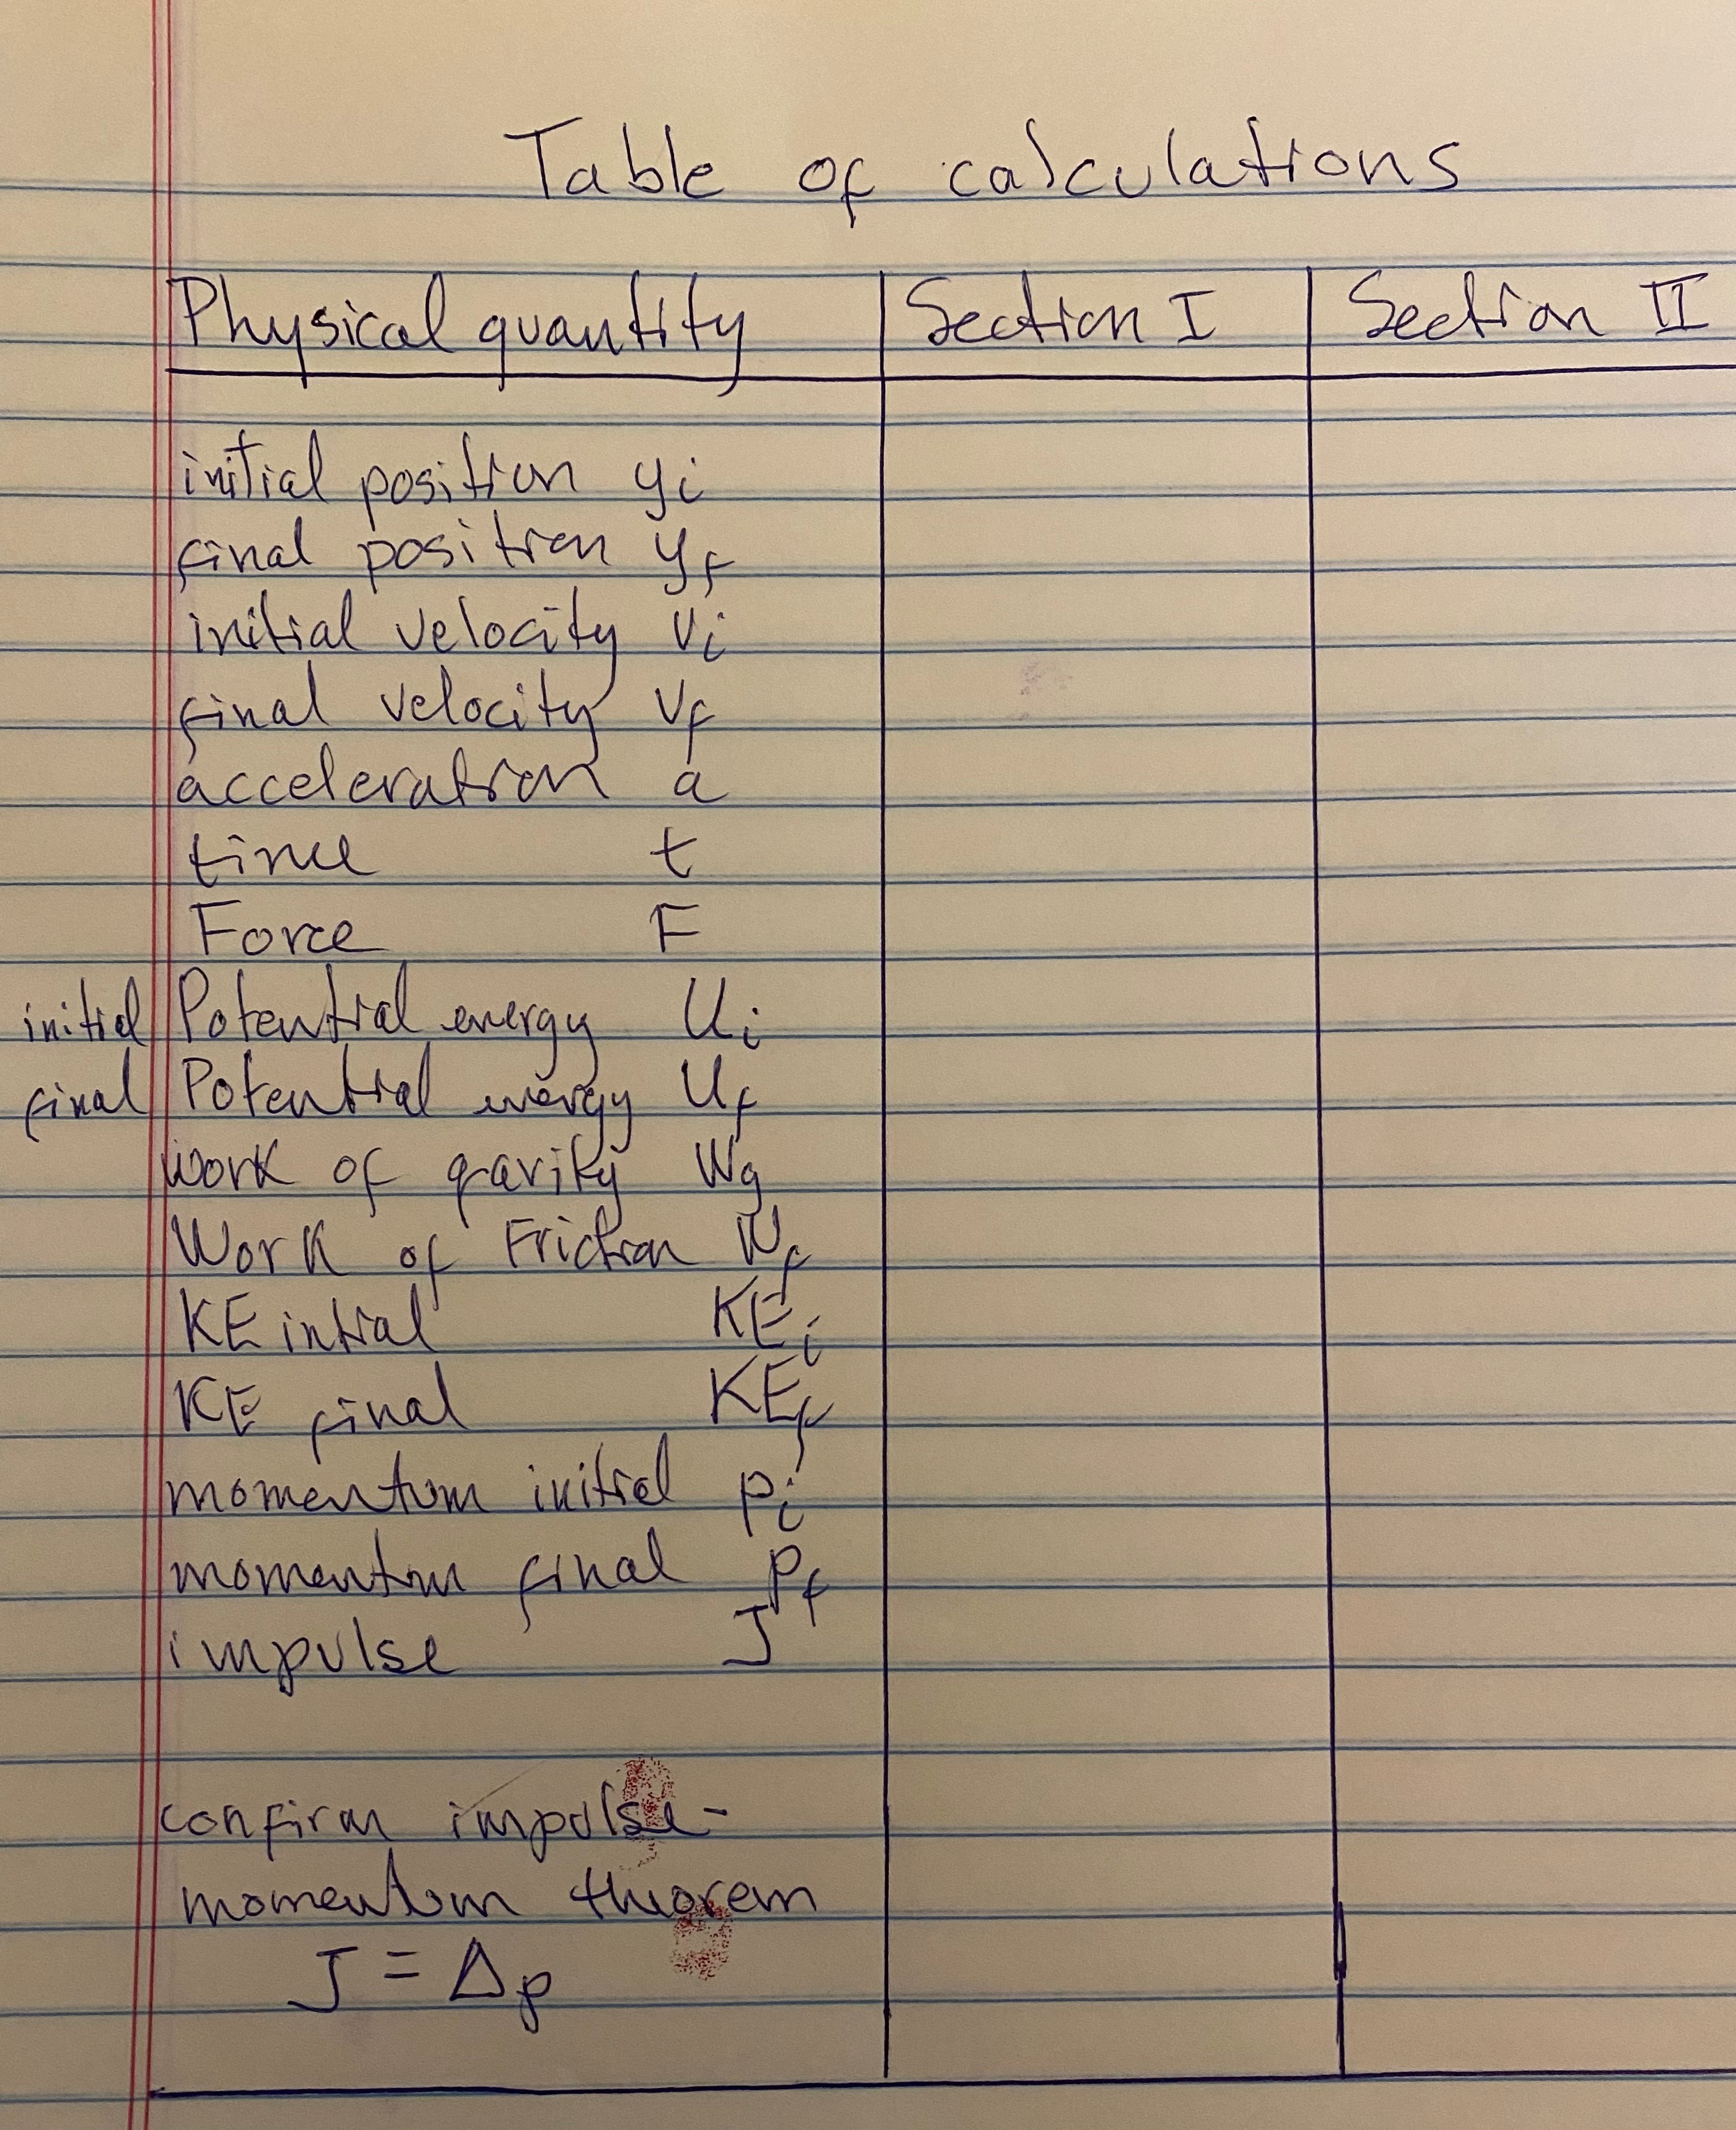 Table of calculations
Physical quantity Section I Section II
initial position yi
final position yf
initial velocity vi
final velocity vf
acceleration a
time t
Force F
initial Potential energy Ui
final Potential energy Uf
Work of gravity Wg
Work of Friction Wf
KE intial KEi
KE final KEf
momentum initial pi
momentum final pf
impulse J
confirm impulse-
momentum theorem
J = Δp